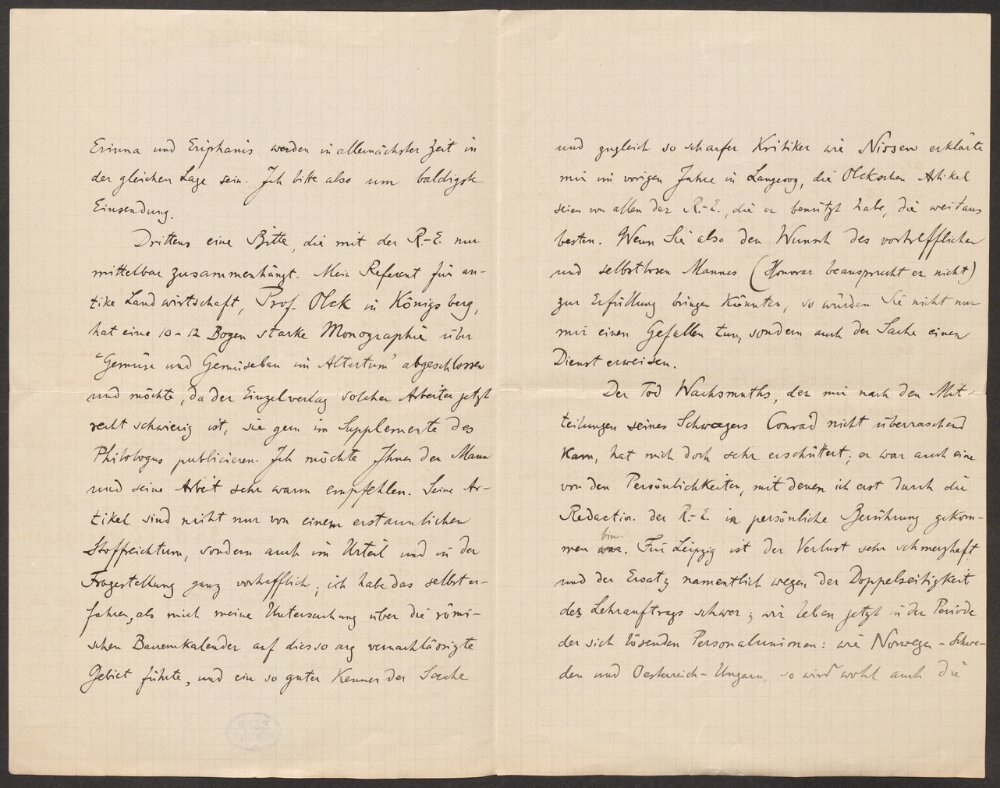 Erinna und Eriphanis werden in allernächster Zeit in
der gleichen Lage sein. Ich bitte also um baldigste
Einsendung.
Drittens eine Bitte, die mit der R.-E. nur
mittelbar zusammenhängt. Mein Referent für an-
tike Landwirtschaft, Prof. Olck in Königsberg,
hat eine 10-12 Bogen starke Monographie über
"Gemüse und Gemüsebau im Altertum" abgeschlossen
und möchte, da der Einzelverlag solcher Arbeiten jetzt
recht schwierig ist, sie gern im Supplemente des
Philologus publicieren. Ich möchte Ihnen den Mann
und seine Arbeit sehr warm empfehlen. Seine Ar-
tikel sind nicht nur von einem erstaunlichen
Stoffreichtum, sondern auch im Urteil und in der
Fragestellung ganz vortrefflich; ich habe das selbst er-
fahren, als mich meine Untersuchung über die römi-
schen Bauernkalender auf dies so arg vernachlässigte
Gebiet führte, und ein so guter Kenner der Sache
und zugleich so scharfer Kritiker wie Nissen erklärte
mir im vorigen Jahre in Langeoog, die Olckschen Artikel
seien von allen der R.-E., die er benützt habe, die weitaus
besten. Wenn Sie also den Wunsch des vortrefflichen
und selbstlosen Mannes (Honorar beansprucht er nicht)
zur Erfüllung bringen könnten, so würden Sie nicht nur
mir einen Gefallen tun, sondern auch der Sache einen
Dienst erweisen.
Der Tod Wachsmuths, der mir nach den Mit-
teilungen seines Schwagers Conrad nicht überraschend
kam, hat mich doch sehr erschüttert; er war auch eine
von den Persönlichkeiten, mit denen ich erst durch die
Redaction der R.-E. in persönliche Berührung gekom-
men bin. Für Leipzig ist der Verlust sehr schmerzhaft
und der Ersatz namentlich wegen der Doppelseitigkeit
des Lehrauftrags schwer; wir leben jetzt in der Periode
der sich lösenden Personalunionen: wie Norwegen-Schwe-
den und Oesterreich-Ungarn, so wird wohl auch die